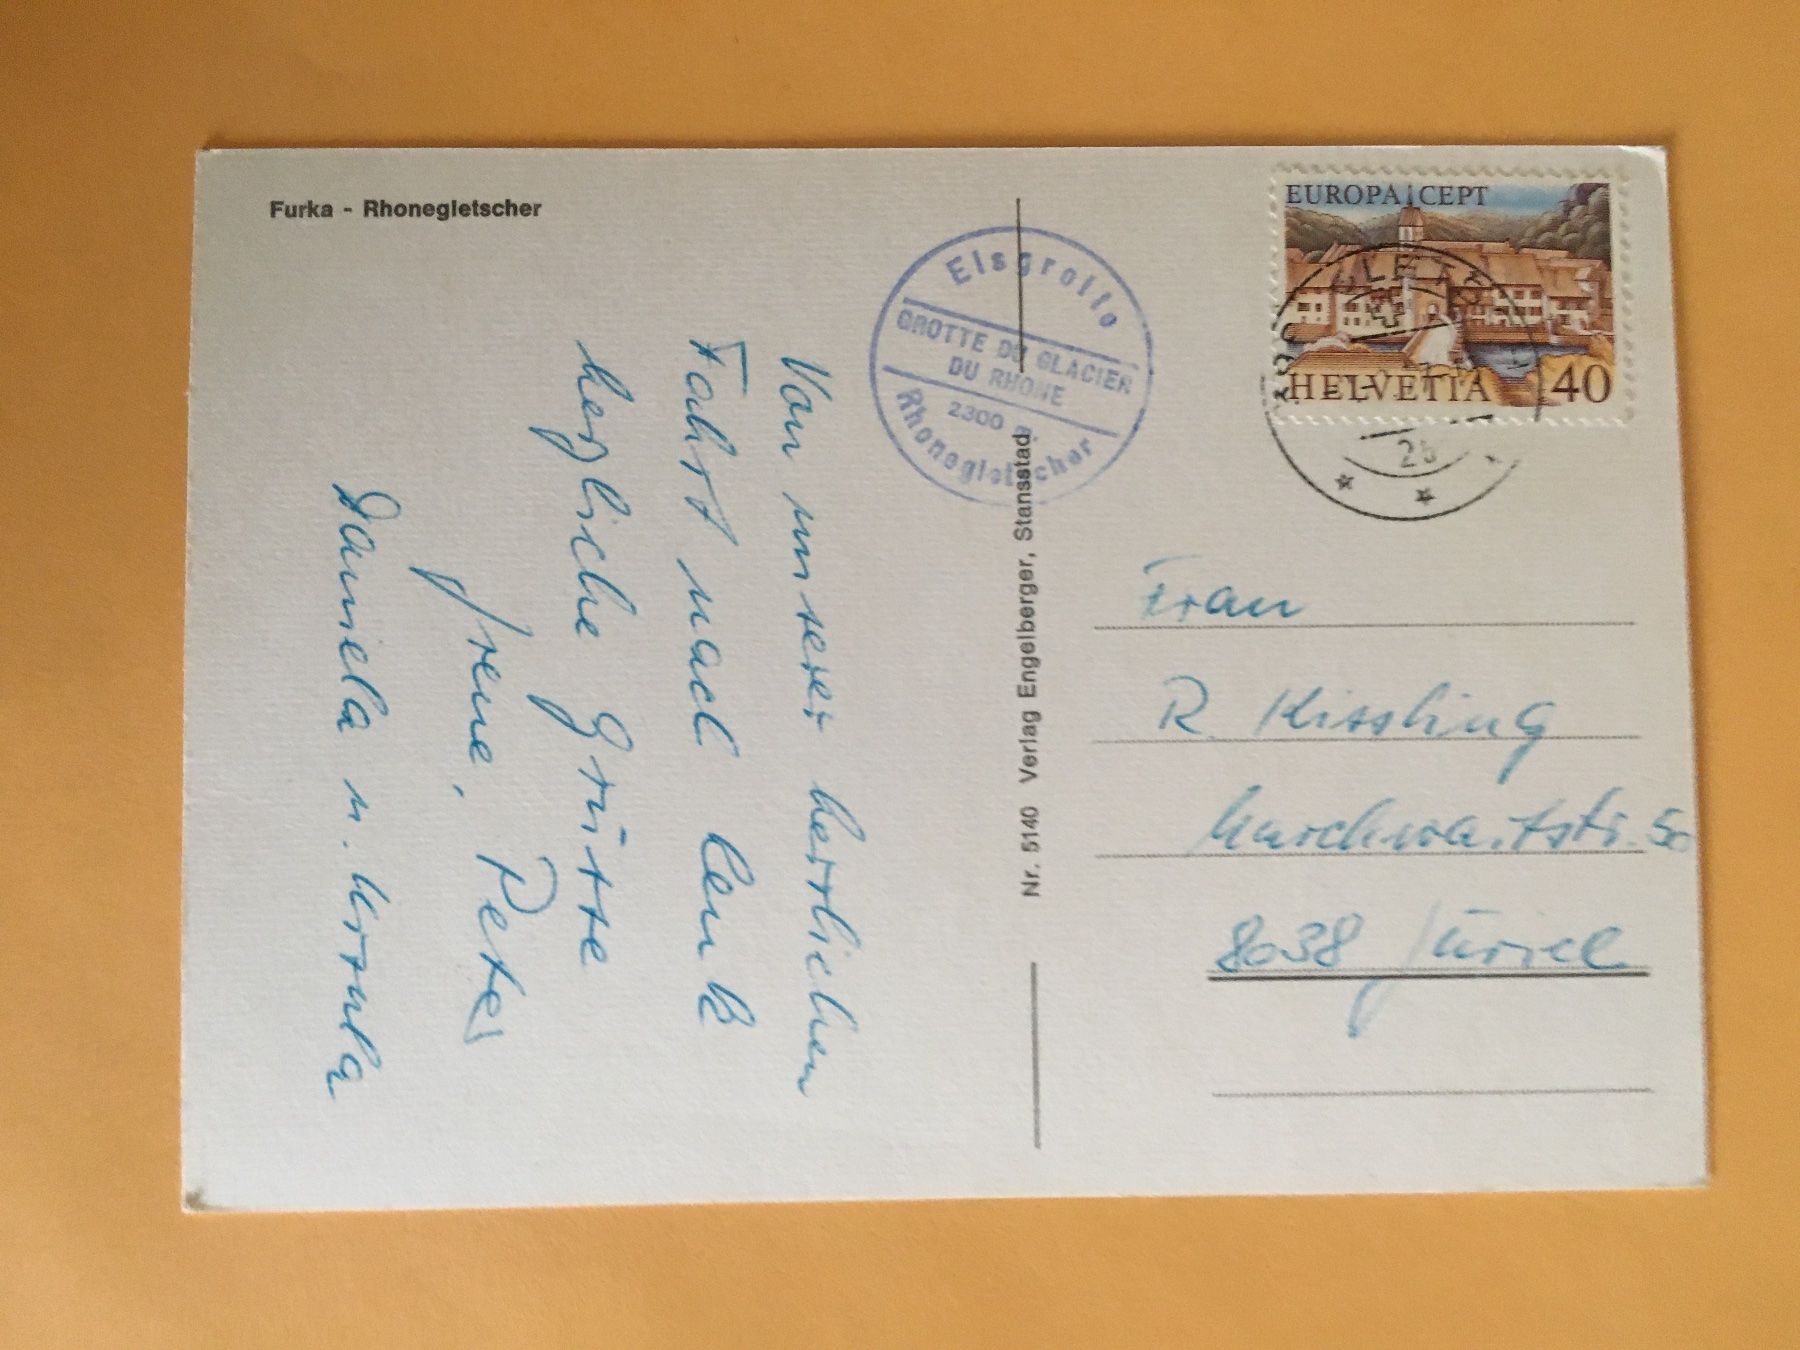 Furka - Rhonegletscher
Von unserer herrlichen
Fahrt nach Lenk
herzliche Grüsse
Irene, Peter
Daniela u. Ursula
Eisgrotte
GROTTE DU GLACIER
DU RHONE
2300 m.
Rhonegletscher
Nr. 5140 Verlag Engelberger, Stansstad
EUROPA CEPT
HELVETIA 40
GLETSCH
Frau
R. Kissling
50
8038 Zürich